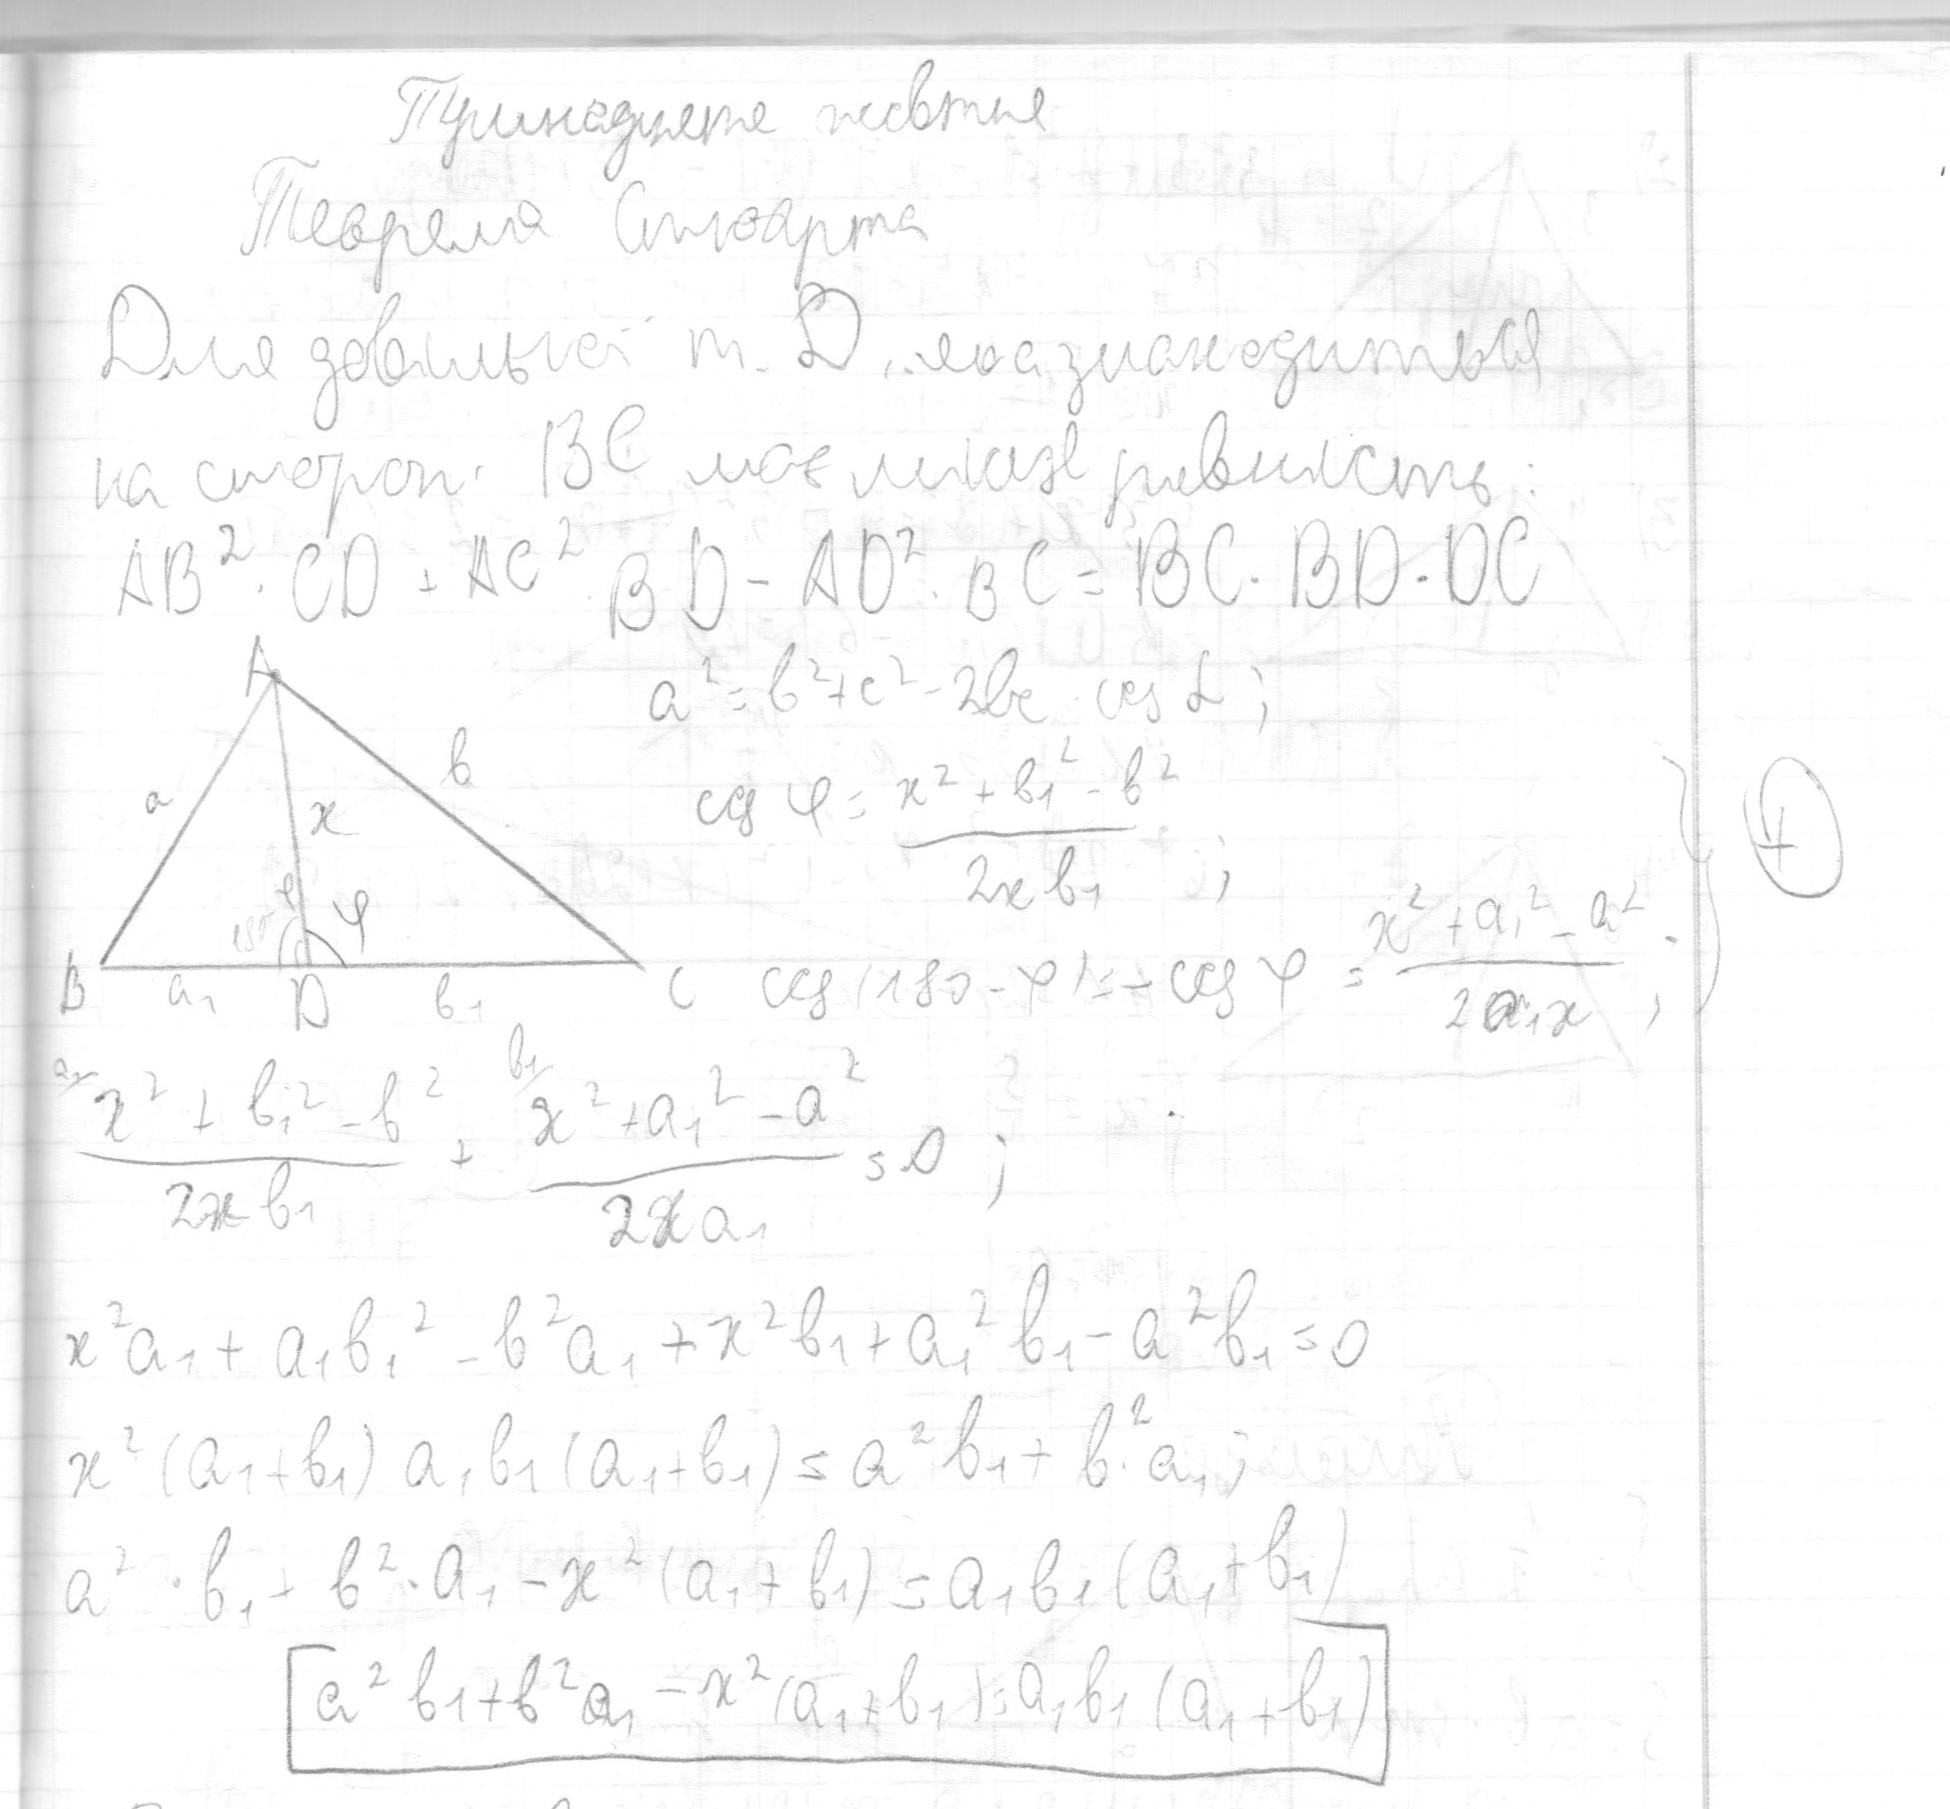 Тринадцяте жовтня
Теорема Стюарта
Для довільної т. D, яка знаходиться
на стороні BC має місце рівність:
AB² · CD + AC² · BD - AD² · BC = BC · BD · DC
A
a² = b² + c² - 2bc cos α;
a
b
x
cos φ = (x² + b₁² - b²) / (2xb₁);
180-φ
φ
B
a₁
D
b₁
C
cos(180-φ) = -cos φ = (x² + a₁² - a²) / (2a₁x);
+
a₁
b₁
(x² + b₁² - b²) / (2xb₁) + (x² + a₁² - a²) / (2xa₁) = 0;
x²a₁ + a₁b₁² - b²a₁ + x²b₁ + a₁²b₁ - a²b₁ = 0
x²(a₁+b₁) a₁b₁(a₁+b₁) = a²b₁ + b²·a₁;
a²·b₁ + b²·a₁ - x²(a₁+b₁) = a₁b₁(a₁+b₁)
a²b₁+b²a₁ - x²(a₁+b₁) = a₁b₁(a₁+b₁)